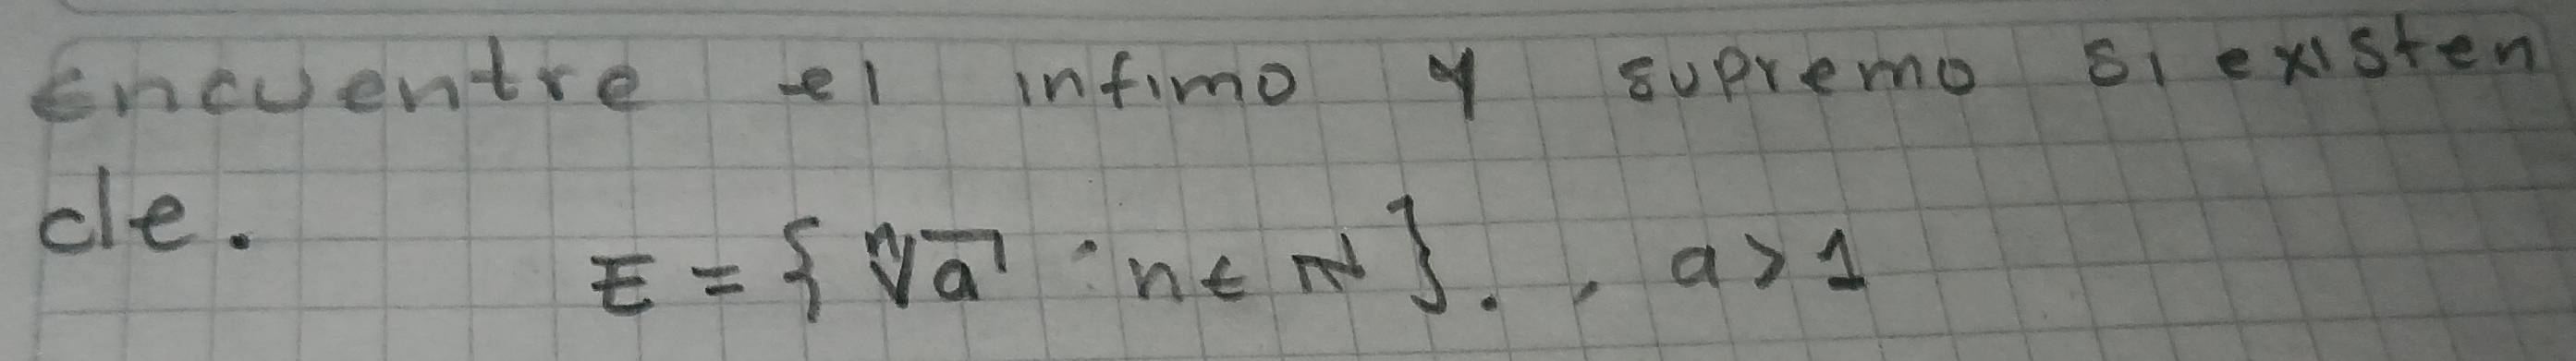 Encuentre el infimo y supremo si existen
de.
E = {ⁿ√a : n ∈ ℕ}. , a > 1